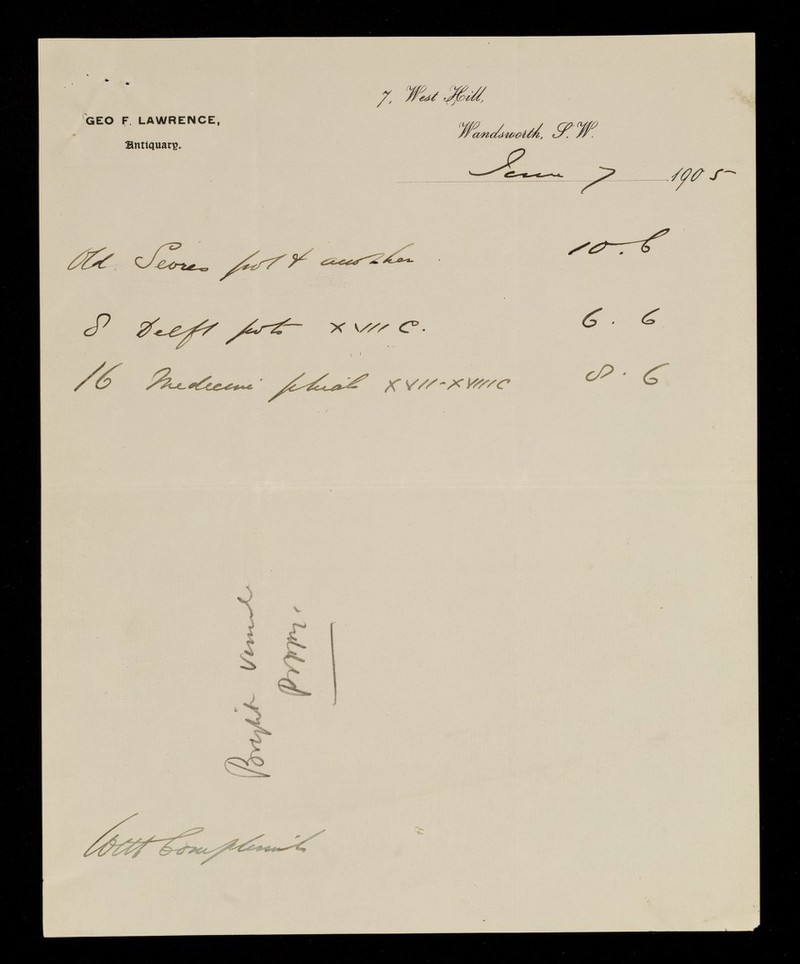 GEO F. LAWRENCE,
Antiquary.
7, West Hill,
Wandsworth, S.W.
June 7 1905
Old Sevres pot & another 10.6
8 Delft pots XVII C. 6.6
16 Medicine phials XVII-XVIII C 8.6
Bright
With Compliments